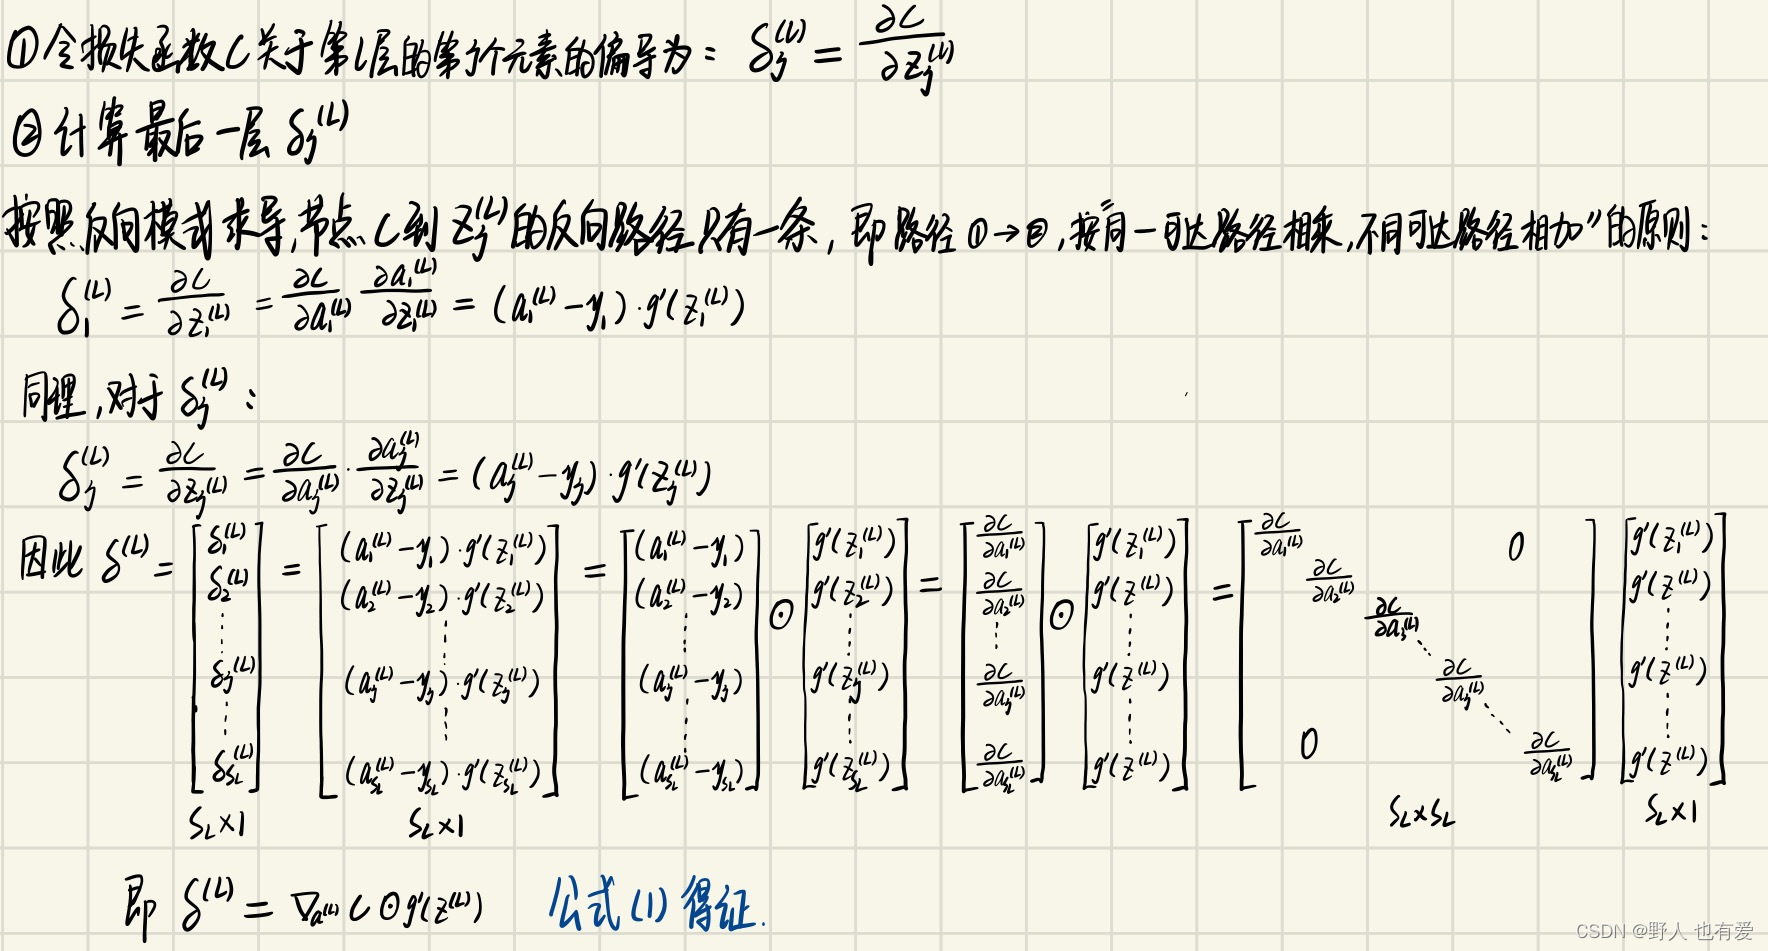 ①令损失函数C关于第l层的第j个元素的偏导为：δ_j^{(l)} = ∂C/∂z_j^{(l)}
②计算最后一层 δ_j^{(L)}
按照反向模式求导,节点C到 z_j^{(L)} 的反向路径只有一条，即路径①→②,按"同一可达路径相乘,不同可达路径相加"的原则：
δ_1^{(L)} = ∂C/∂z_1^{(L)} = ∂C/∂a_1^{(L)} ∂a_1^{(L)}/∂z_1^{(L)} = (a_1^{(L)} - y_1)·g'(z_1^{(L)})
同理,对于 δ_j^{(L)}：
δ_j^{(L)} = ∂C/∂z_j^{(L)} = ∂C/∂a_j^{(L)} · ∂a_j^{(L)}/∂z_j^{(L)} = (a_j^{(L)} - y_j)·g'(z_j^{(L)})
因此 δ^{(L)} = [δ_1^{(L)} δ_2^{(L)} ⋮ δ_j^{(L)} ⋮ δ_{S_L}^{(L)}] = [(a_1^{(L)} - y_1)·g'(z_1^{(L)}) (a_2^{(L)} - y_2)·g'(z_2^{(L)}) ⋮ (a_j^{(L)} - y_j)·g'(z_j^{(L)}) ⋮ (a_{S_L}^{(L)} - y_{S_L})·g'(z_{S_L}^{(L)})] = [(a_1^{(L)} - y_1) (a_2^{(L)} - y_2) ⋮ (a_j^{(L)} - y_j) ⋮ (a_{S_L}^{(L)} - y_{S_L})] ⊙ [g'(z_1^{(L)}) g'(z_2^{(L)}) ⋮ g'(z_j^{(L)}) ⋮ g'(z_{S_L}^{(L)})] = [∂C/∂a_1^{(L)} ∂C/∂a_2^{(L)} ⋮ ∂C/∂a_j^{(L)} ⋮ ∂C/∂a_{S_L}^{(L)}] ⊙ [g'(z_1^{(L)}) g'(z^{(L)}) ⋮ g'(z^{(L)}) ⋮ g'(z^{(L)})] = [∂C/∂a_1^{(L)} 0 ∂C/∂a_2^{(L)} ∂C/∂a_3^{(L)} ⋱ ∂C/∂a_j^{(L)} ⋱ 0 ∂C/∂a_{S_L}^{(L)}] [g'(z_1^{(L)}) g'(z^{(L)}) ⋮ g'(z^{(L)}) ⋮ g'(z^{(L)})]
S_L×1 S_L×1 S_L×S_L S_L×1
即 δ^{(L)} = ∇_{a^{(L)}} C ⊙ g'(z^{(L)}) 公式(1)得证.
CSDN @野人 也有爱